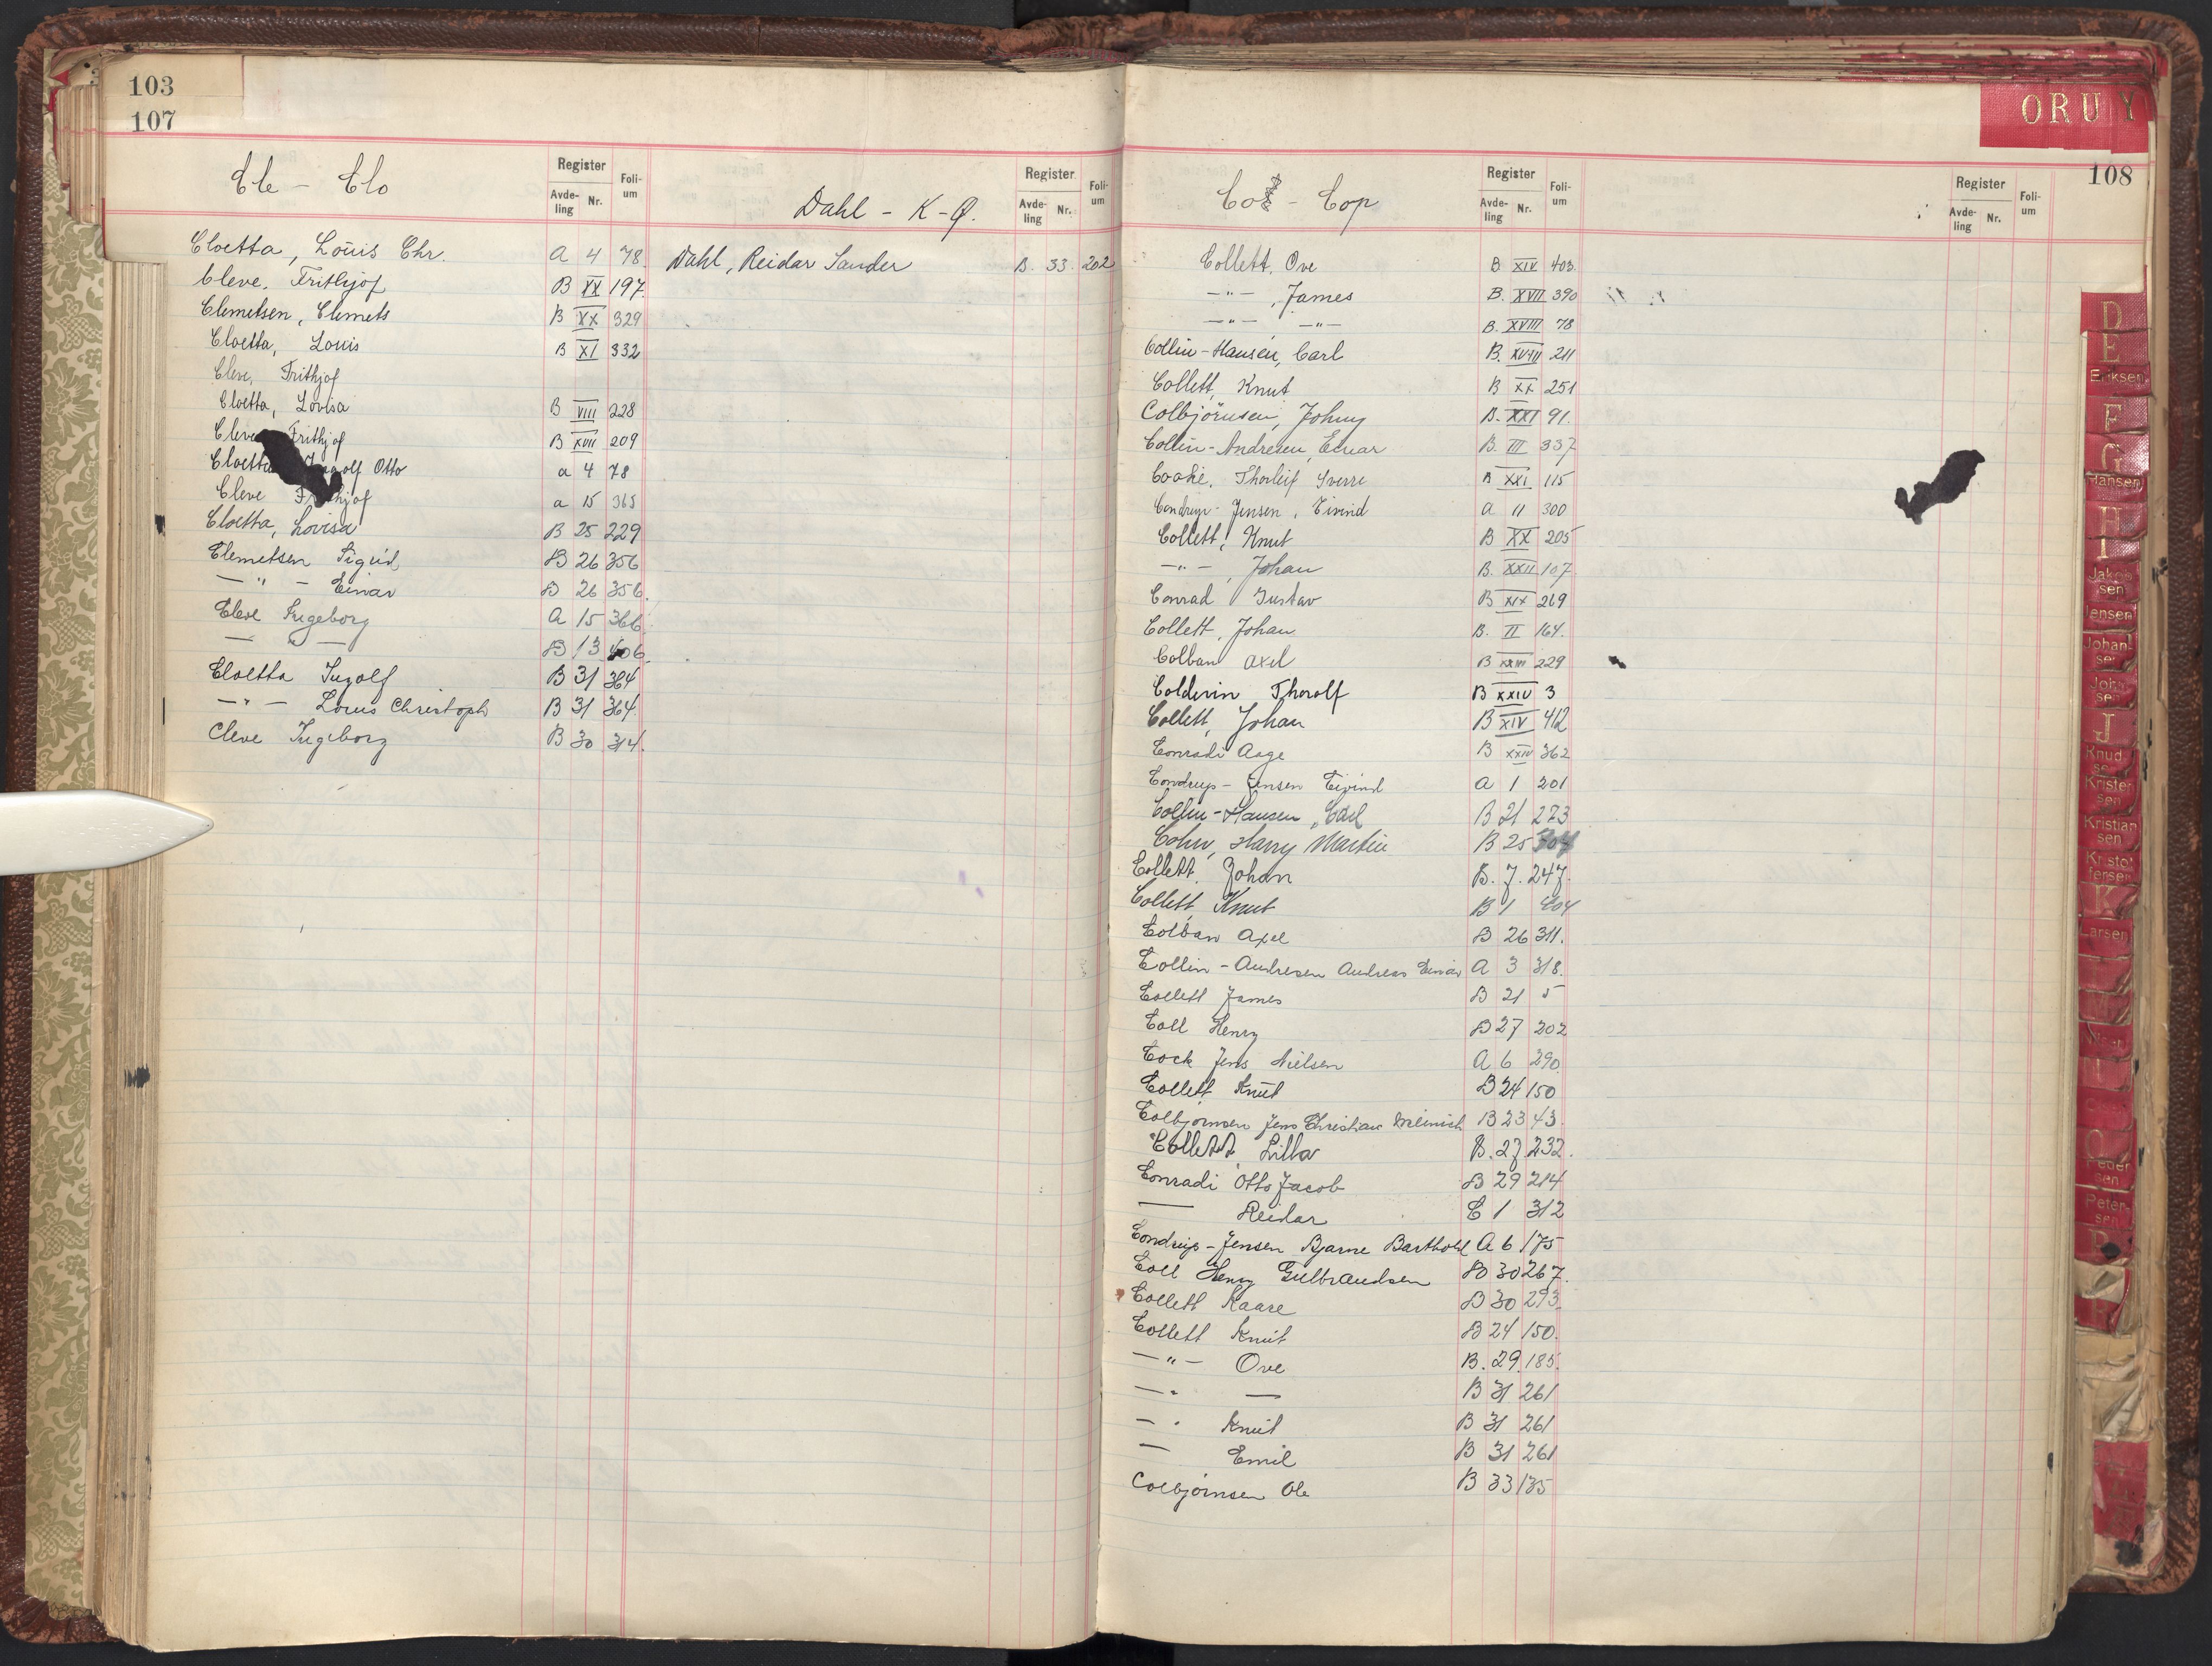 103
107
Cle - Clo
Register
Avde-
ling
Nr.
Foli-
um
Cloetta, Louis Chr. A 4 78.
Cleve, Frithjof B XX 197.
Clemetsen, Clemets B XX 329
Cloetta, Louis B XI 332
Cleve, Frithjof
Cloetta, Lovisa B VIII 228
Cleve Frithjof B XVII 209
Cloetta Ingolf Otto a 4 78
Cleve Frithjof a 15 365
Cloetta, Lovisa B 25 229
Clemetsen Sigrid B 26 356
— " — Einar B 26 356.
Cleve Ingeborg A 15 366.
— " — B 13 406.
Cloetta Ingolf B 31 364
— " — Louis Christoph B 31 364.
Cleve Ingeborg B 30 314.
Dahl - K-Q.
Register
Avde-
ling
Nr.
Foli-
um
Dahl, Reidar Sander B. 33. 202
ORUY
108
Co - Cop
Register
Avde-
ling
Nr.
Foli-
um
Collett, Ove B XIV 403.
— " —, James B. XVII 390
— " — — " — B. XVIII 78
Collin-Hansen, Carl B. XVIII 211
Collett, Knut B XX 251
Colbjörnsen, Johny B. XXI 91.
Collin-Andresen, Einar B. III 337
Cooke, Thorleif Sverre B XXI 115
Condrup-Jensen, Eivind A 11 300
Collett, Knut B XX 205
— " —, Johan B. XXII 107.
Conrad Gustav B XIX 269
Collett, Johan B. II 164.
Colban Axel B XXIII 229
Colderin Thorolf B XXIV 3
Collett, Johan B XIV 412
Conradi Aage B XXIV 362
Condrup-Jensen Eivind A 1 201
Collin-Hansen, Carl B 21 273
Cohn, Harry Martin B 25
Collett, Johan B. 7. 247.
Collett, Knut B 1 404
Colban Axel B 26 311.
Collin-Andresen Andreas Einar A 3 318.
Collett James B 21 5
Coll Henry B 27 202
Cock Jens Nielsen A 6 290.
Collett Knut B 24 150
Colbjørnsen Jens Christian Meinich B 23 43.
Collett, Lilla B. 27. 232.
Conradi Otto Jacob B 29 214
— Reidar C 1 312
Condrup-Jensen Bjarne Barthold A 6 175
Coll Henry Gulbrandsen B 30 267.
Collett Kaare B 30 293.
Collett Knut B 24 150.
— " — Ove B. 29. 185.
— " — B 31 261
— " Knut B 31 261
— Emil B 31 261
Colbjørnsen Ole B 33 135
Register
Avde-
ling
Nr.
Foli-
um
D
E
Eriksen
F
G
Hansen
H
I
Jakob
sen
Jensen
Johan-
sen
Joh
sen
J
Knud
se
Krister
sen
Kristian
sen
Kristof
fersen
K
Larsen
Peder
sen
Peter-
sen
P